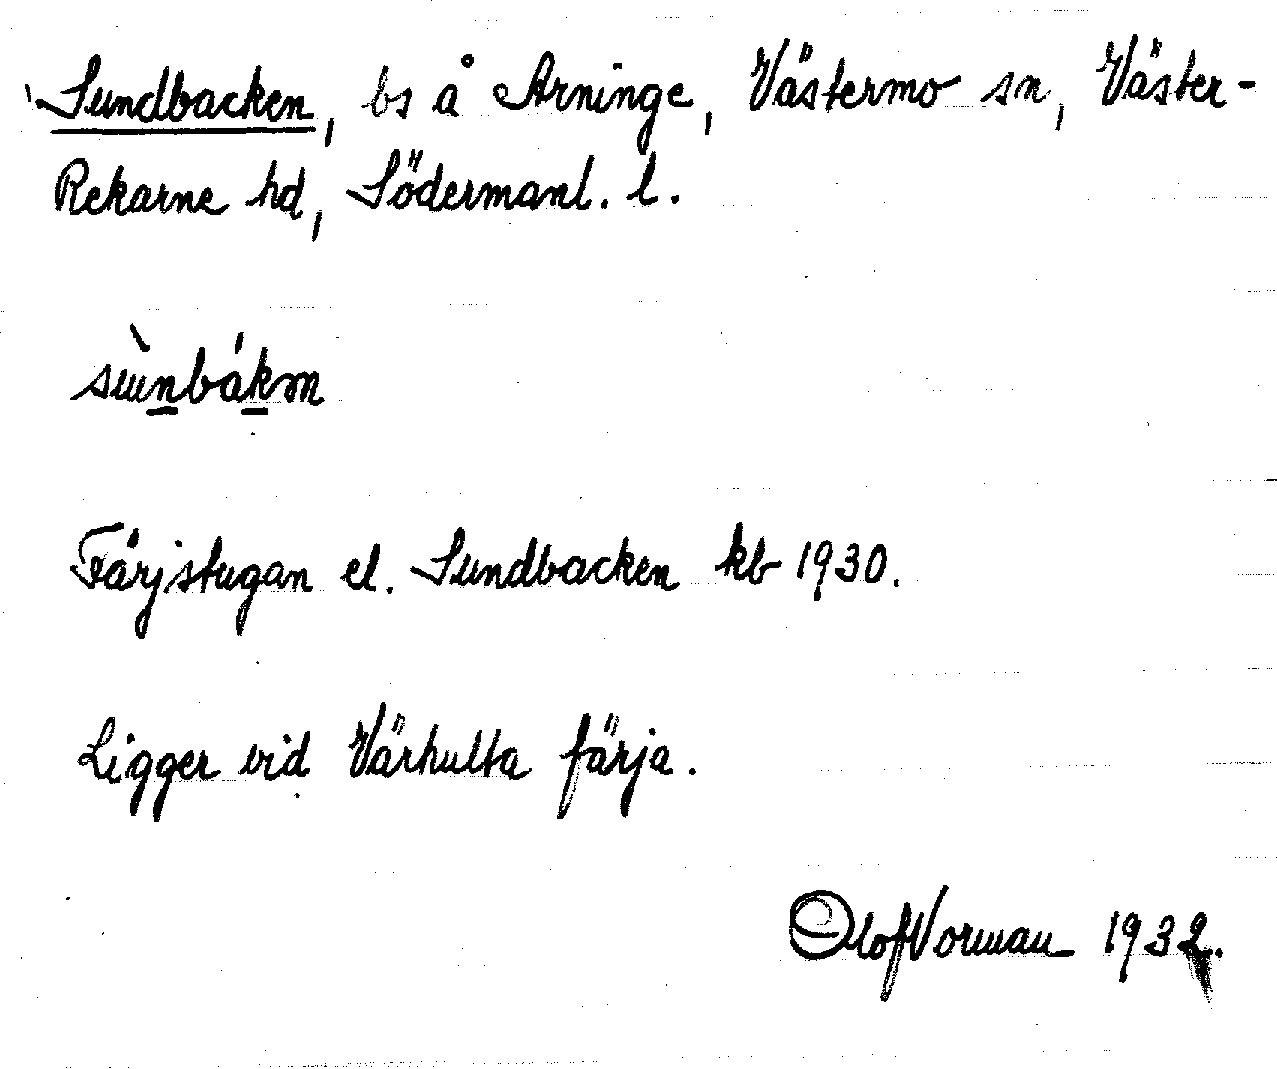 Sundbacken, bs å Arninge, Västermo sn, Väster-
Rekarne hd, Södermanl. l.
Färjstugan el. Sundbacken kb 1930.
Ligger vid Värhulta färja.
Olof Vorman 1932.